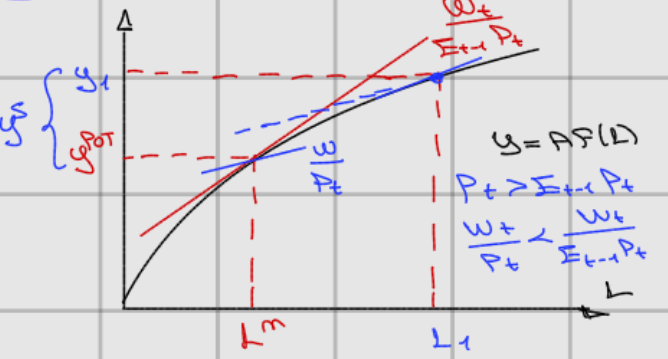 W_t / E_{t-1} P_t
y^s { y_1
y^{POT}
W / P_t
y = AF(L)
P_t > E_{t-1} P_t
W_t / P_t < W_t / E_{t-1} P_t
L
L^n
L_1